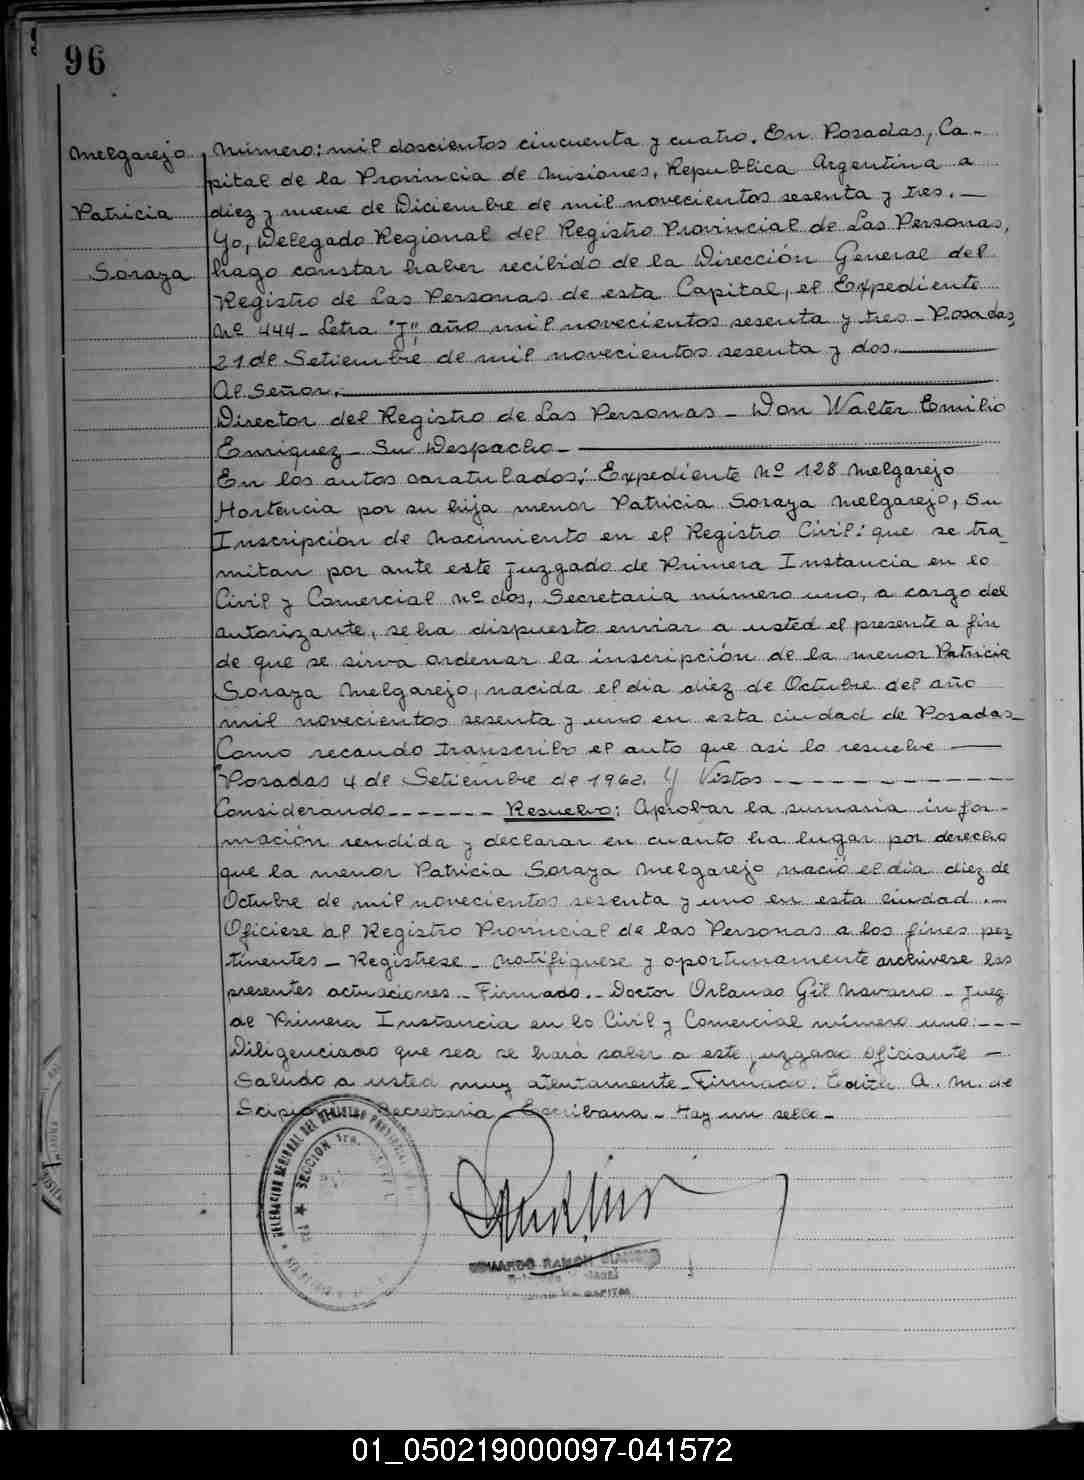 96
Melgarejo
Patricia
Soraya
Número: mil doscientos cincuenta y cuatro. En Posadas, Ca-
pital de la Provincia de Misiones, Republica Argentina a
diez y nueve de Diciembre de mil novecientos sesenta y tres.—
Yo, Delegado Regional del Registro Provincial de Las Personas,
hago constar haber recibido de la Dirección General del
Registro de Las Personas de esta Capital, el Expediente
Nº 444- Letra "J", año mil novecientos sesenta y tres- Posadas,
21 de Setiembre de mil novecientos sesenta y dos.—
Al Señor.—
Director del Registro de Las Personas - Don Walter Emilio
Enriquez- Su Despacho-—
En los autos caratulados: Expediente Nº 128 Melgarejo
Hortencia por su hija menor Patricia Soraya Melgarejo, Su
Inscripción de Nacimiento en el Registro Civil: que se tra-
mitan por ante este Juzgado de Primera Instancia en lo
Civil y Comercial Nº dos, Secretaria número uno, a cargo del
autorizante, se ha dispuesto enviar a usted el presente a fin
de que se sirva ordenar la inscripción de la menor Patricia
Soraya Melgarejo, nacida el dia diez de Octubre del año
mil novecientos sesenta y uno en esta ciudad de Posadas-
Como recaudo transcribo el auto que asi lo resuelve —
"Posadas 4 de Setiembre de 1962. Y Vistos - - - - - - - - - - - -
Considerando - - - - - - - Resuelvo: Aprobar la sumaria infor-
mación rendida y declarar en cuanto ha lugar por derecho
que la menor Patricia Soraya Melgarejo nació el dia diez de
Octubre de mil novecientos sesenta y uno en esta ciudad.—
Ofíciese al Registro Provincial de las Personas a los fines per
tinentes - Registrese - Notifiquese y oportunamente archivese las
presentes actuaciones - Firmado.- Doctor Orlando Gil Navarro - Juez
de Primera Instancia en lo Civil y Comercial número uno:- - -
Diligenciado que sea se hará saber a este juzgado oficiante -
Saludo a usted muy atentamente- Firmado. Edith A. M. de
Secretaria Escribana - Hay un sello -
DELEGACION REGIONAL DEL REGISTRO PROVINCIAL
SECCION 1ra.
EDUARDO RAMON
01_050219000097-041572